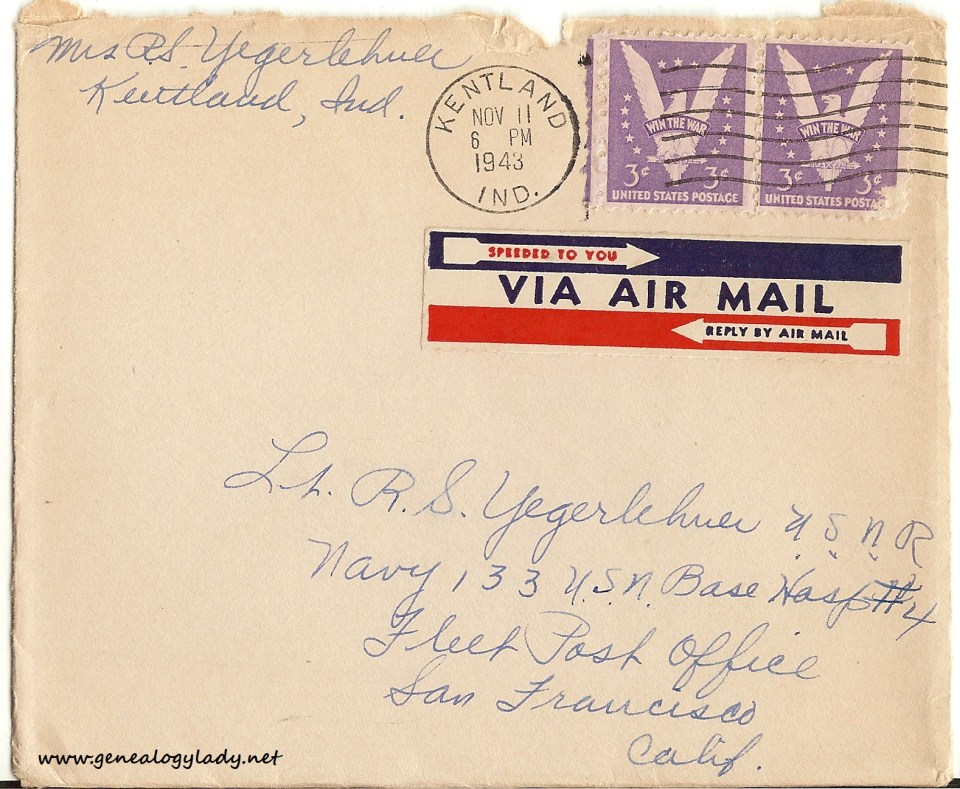 Mrs R.S. Yegerlehner
Kentland, Ind.
KENTLAND
NOV 11
6 PM
1943
IND.
WIN THE WAR
3¢ 3¢
UNITED STATES POSTAGE
WIN THE WAR
3¢ 3¢
UNITED STATES POSTAG
SPEEDED TO YOU
VIA AIR MAIL
REPLY BY AIR MAIL
Lt. R. S. Yegerlehner U.S.N.R
Navy 133 U.S.N. Base Hosp #4
Fleet Post Office
San Francisco
Calif.
www.genealogylady.net